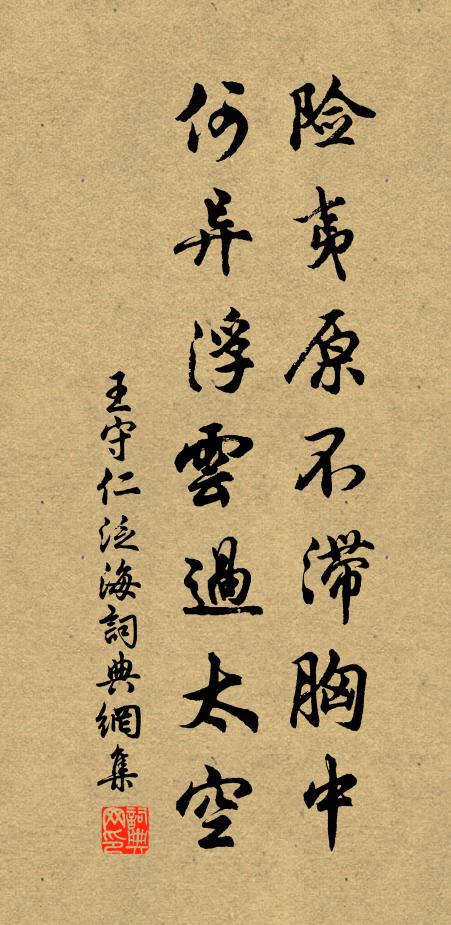 险夷原不滞胸中
何异浮雲過太空
王守仁泛海詞典網集
詞典网印